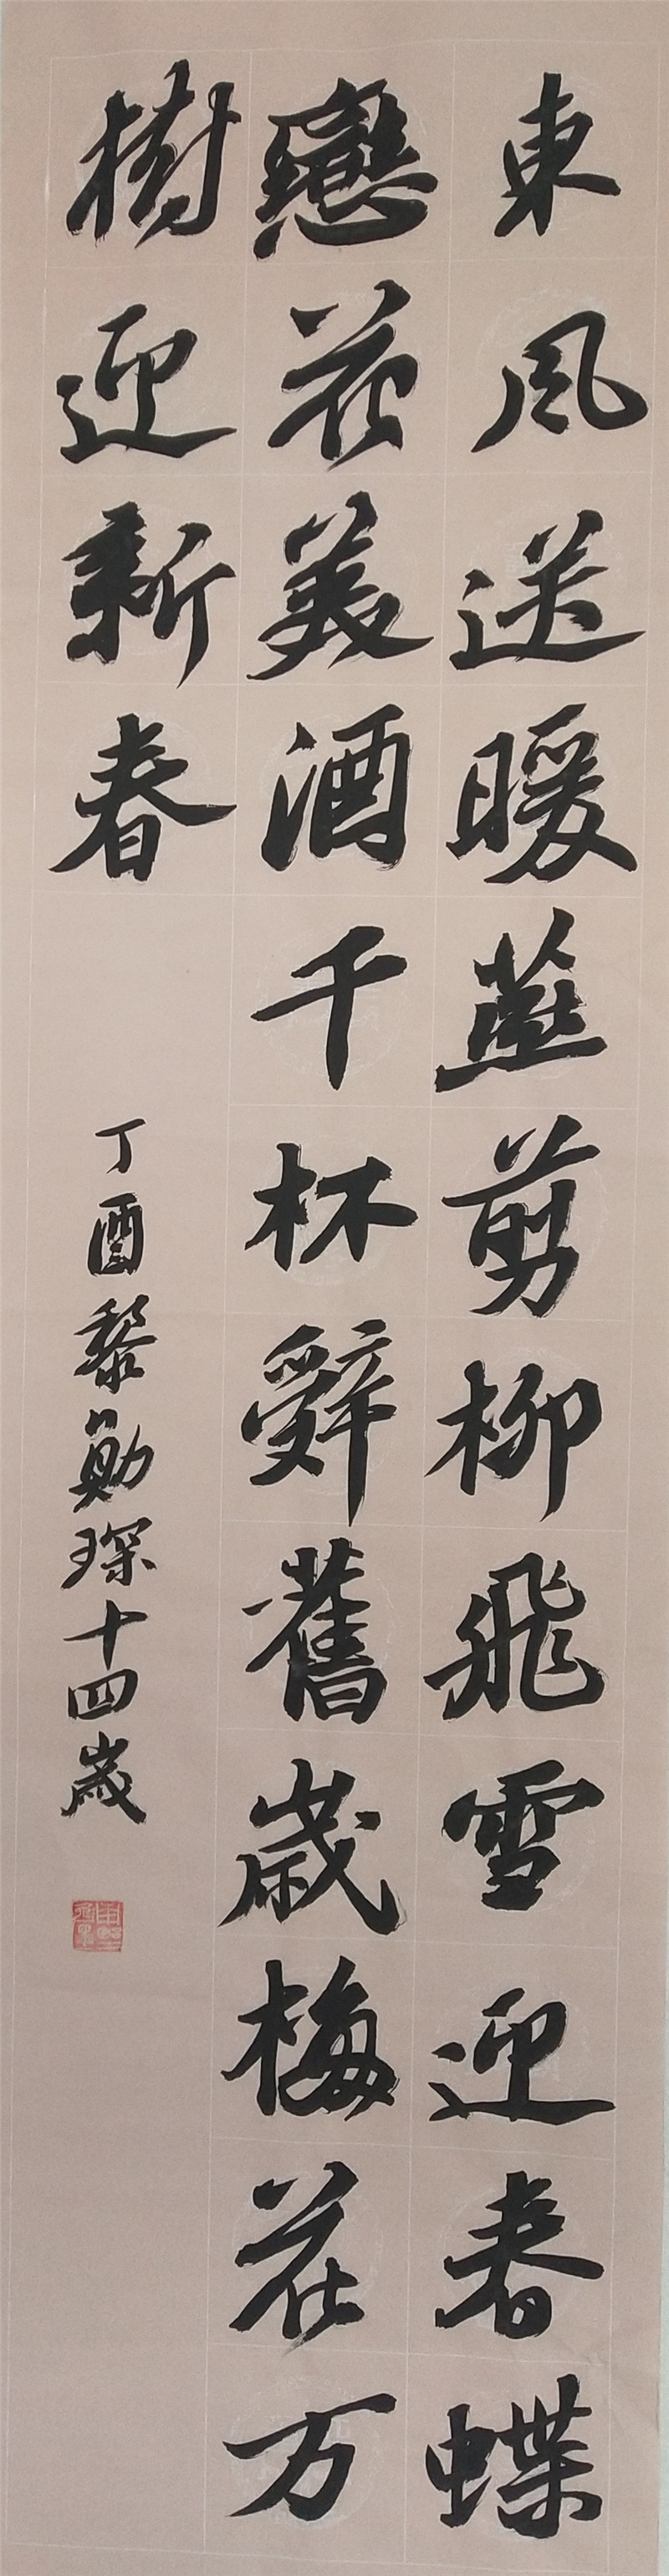 東風送暖燕剪柳飛雪迎春蝶
戀花美酒千杯辭舊歲梅花万
樹迎新春
丁酉黎勛琛十四歲